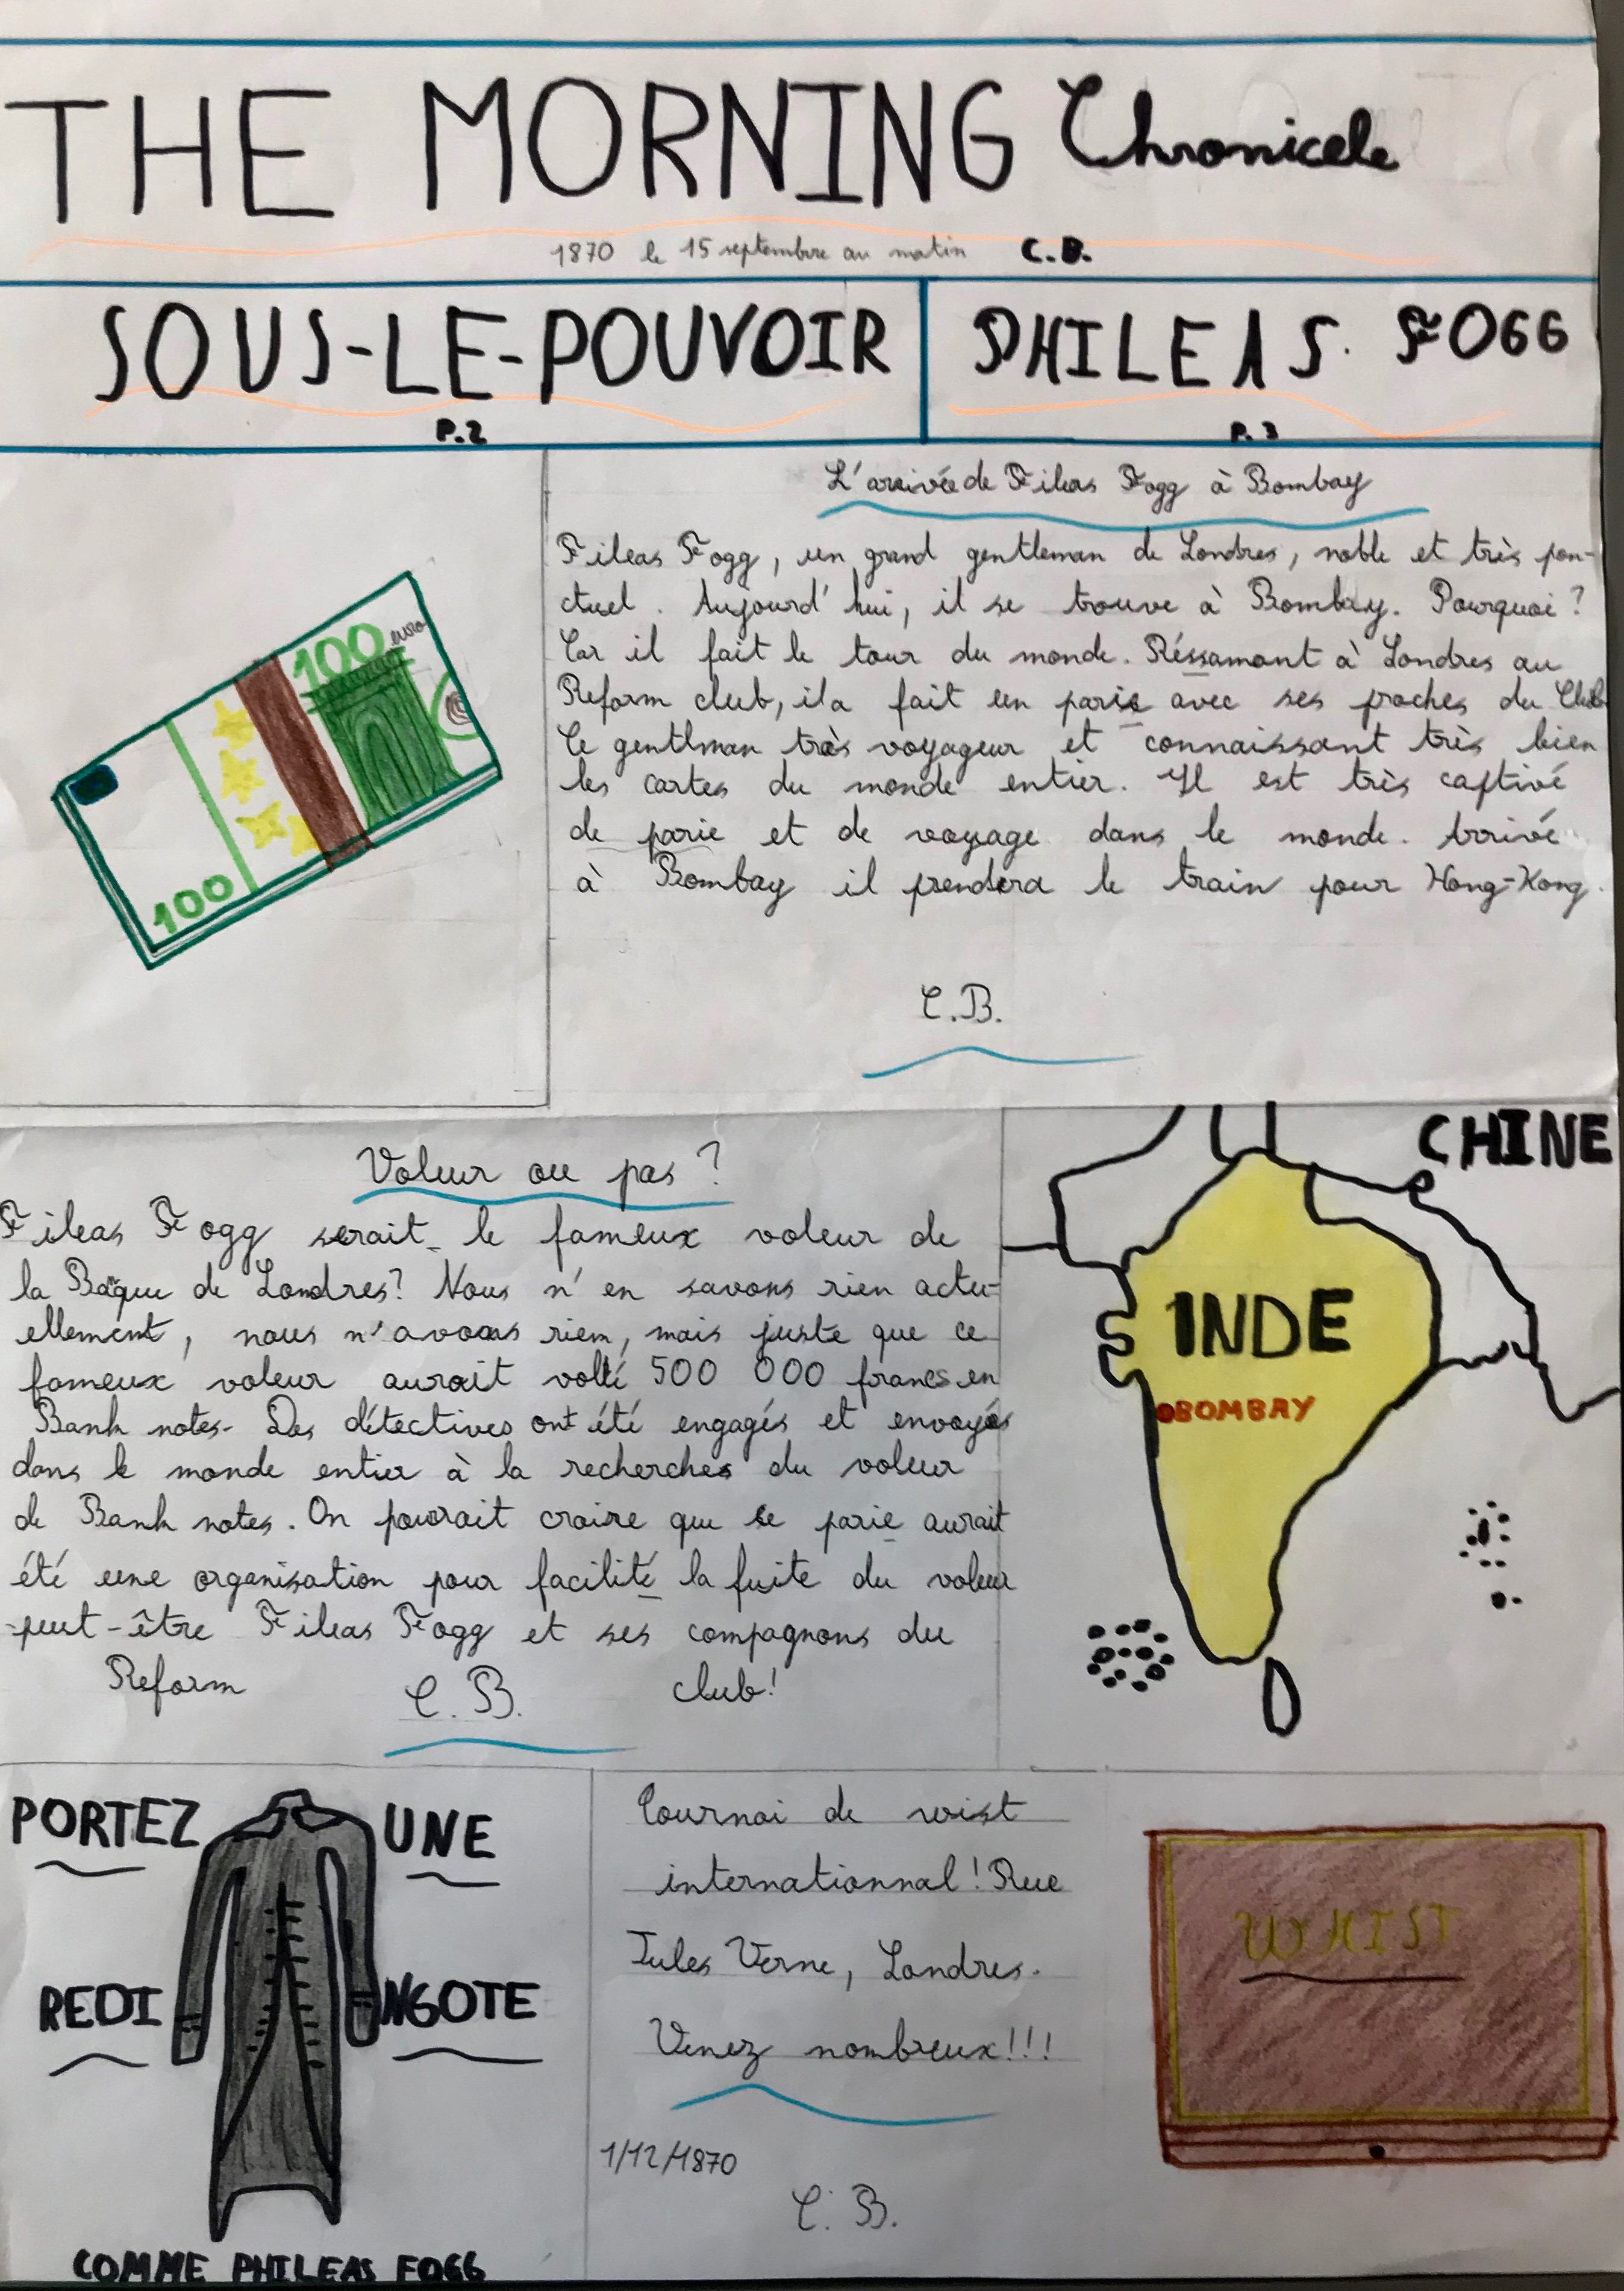 THE MORNING Chronicele
1870 le 15 septembre au matin C.B.
SOUS-LE-POUVOIR
P.2
PHILEAS. FOGG
P.3
100 euro
100
L'arrivée de Fileas Fogg à Bombay
Fileas Fogg, un grand gentleman de Londres, noble et très pon-
ctuel. Aujourd'hui, il se trouve à Bombay. Pourquoi?
Car il fait le tour du monde. Réssamont à Londres au
Reform club, il a fait un parie avec ses proches du Club
Ce gentlman très voyageur et connaissant très bien
les cartes du monde entier. Il est très captivé
de parie et de voyage dans le monde. Arrivé
à Bombay il prendera le train pour Hong-Kong.
C.B.
Voleur ou pas?
Fileas Fogg serait le fameux voleur de
la Banque de Londres? Nous n'en savons rien actu-
ellement, nous n'avons rien, mais juste que ce
fameux voleur aurait volé 500 000 francs en
Bank notes. Des détectives ont été engagés et envoyés
dans le monde entier à la recherches du voleur
de Bank notes. On pourait croire que le parie aurait
été une organisation pour facilité la fuite du voleur
peut-être Fileas Fogg et ses compagnons du
Reform club!
C.B.
CHINE
INDE
BOMBAY
PORTEZ UNE
REDINGOTE
COMME PHILEAS FOGG
Tournoi de wist
internationnal! Rue
Jules Verne, Londres.
Venez nombreux!!!
1/12/1870
C.B.
WHIST